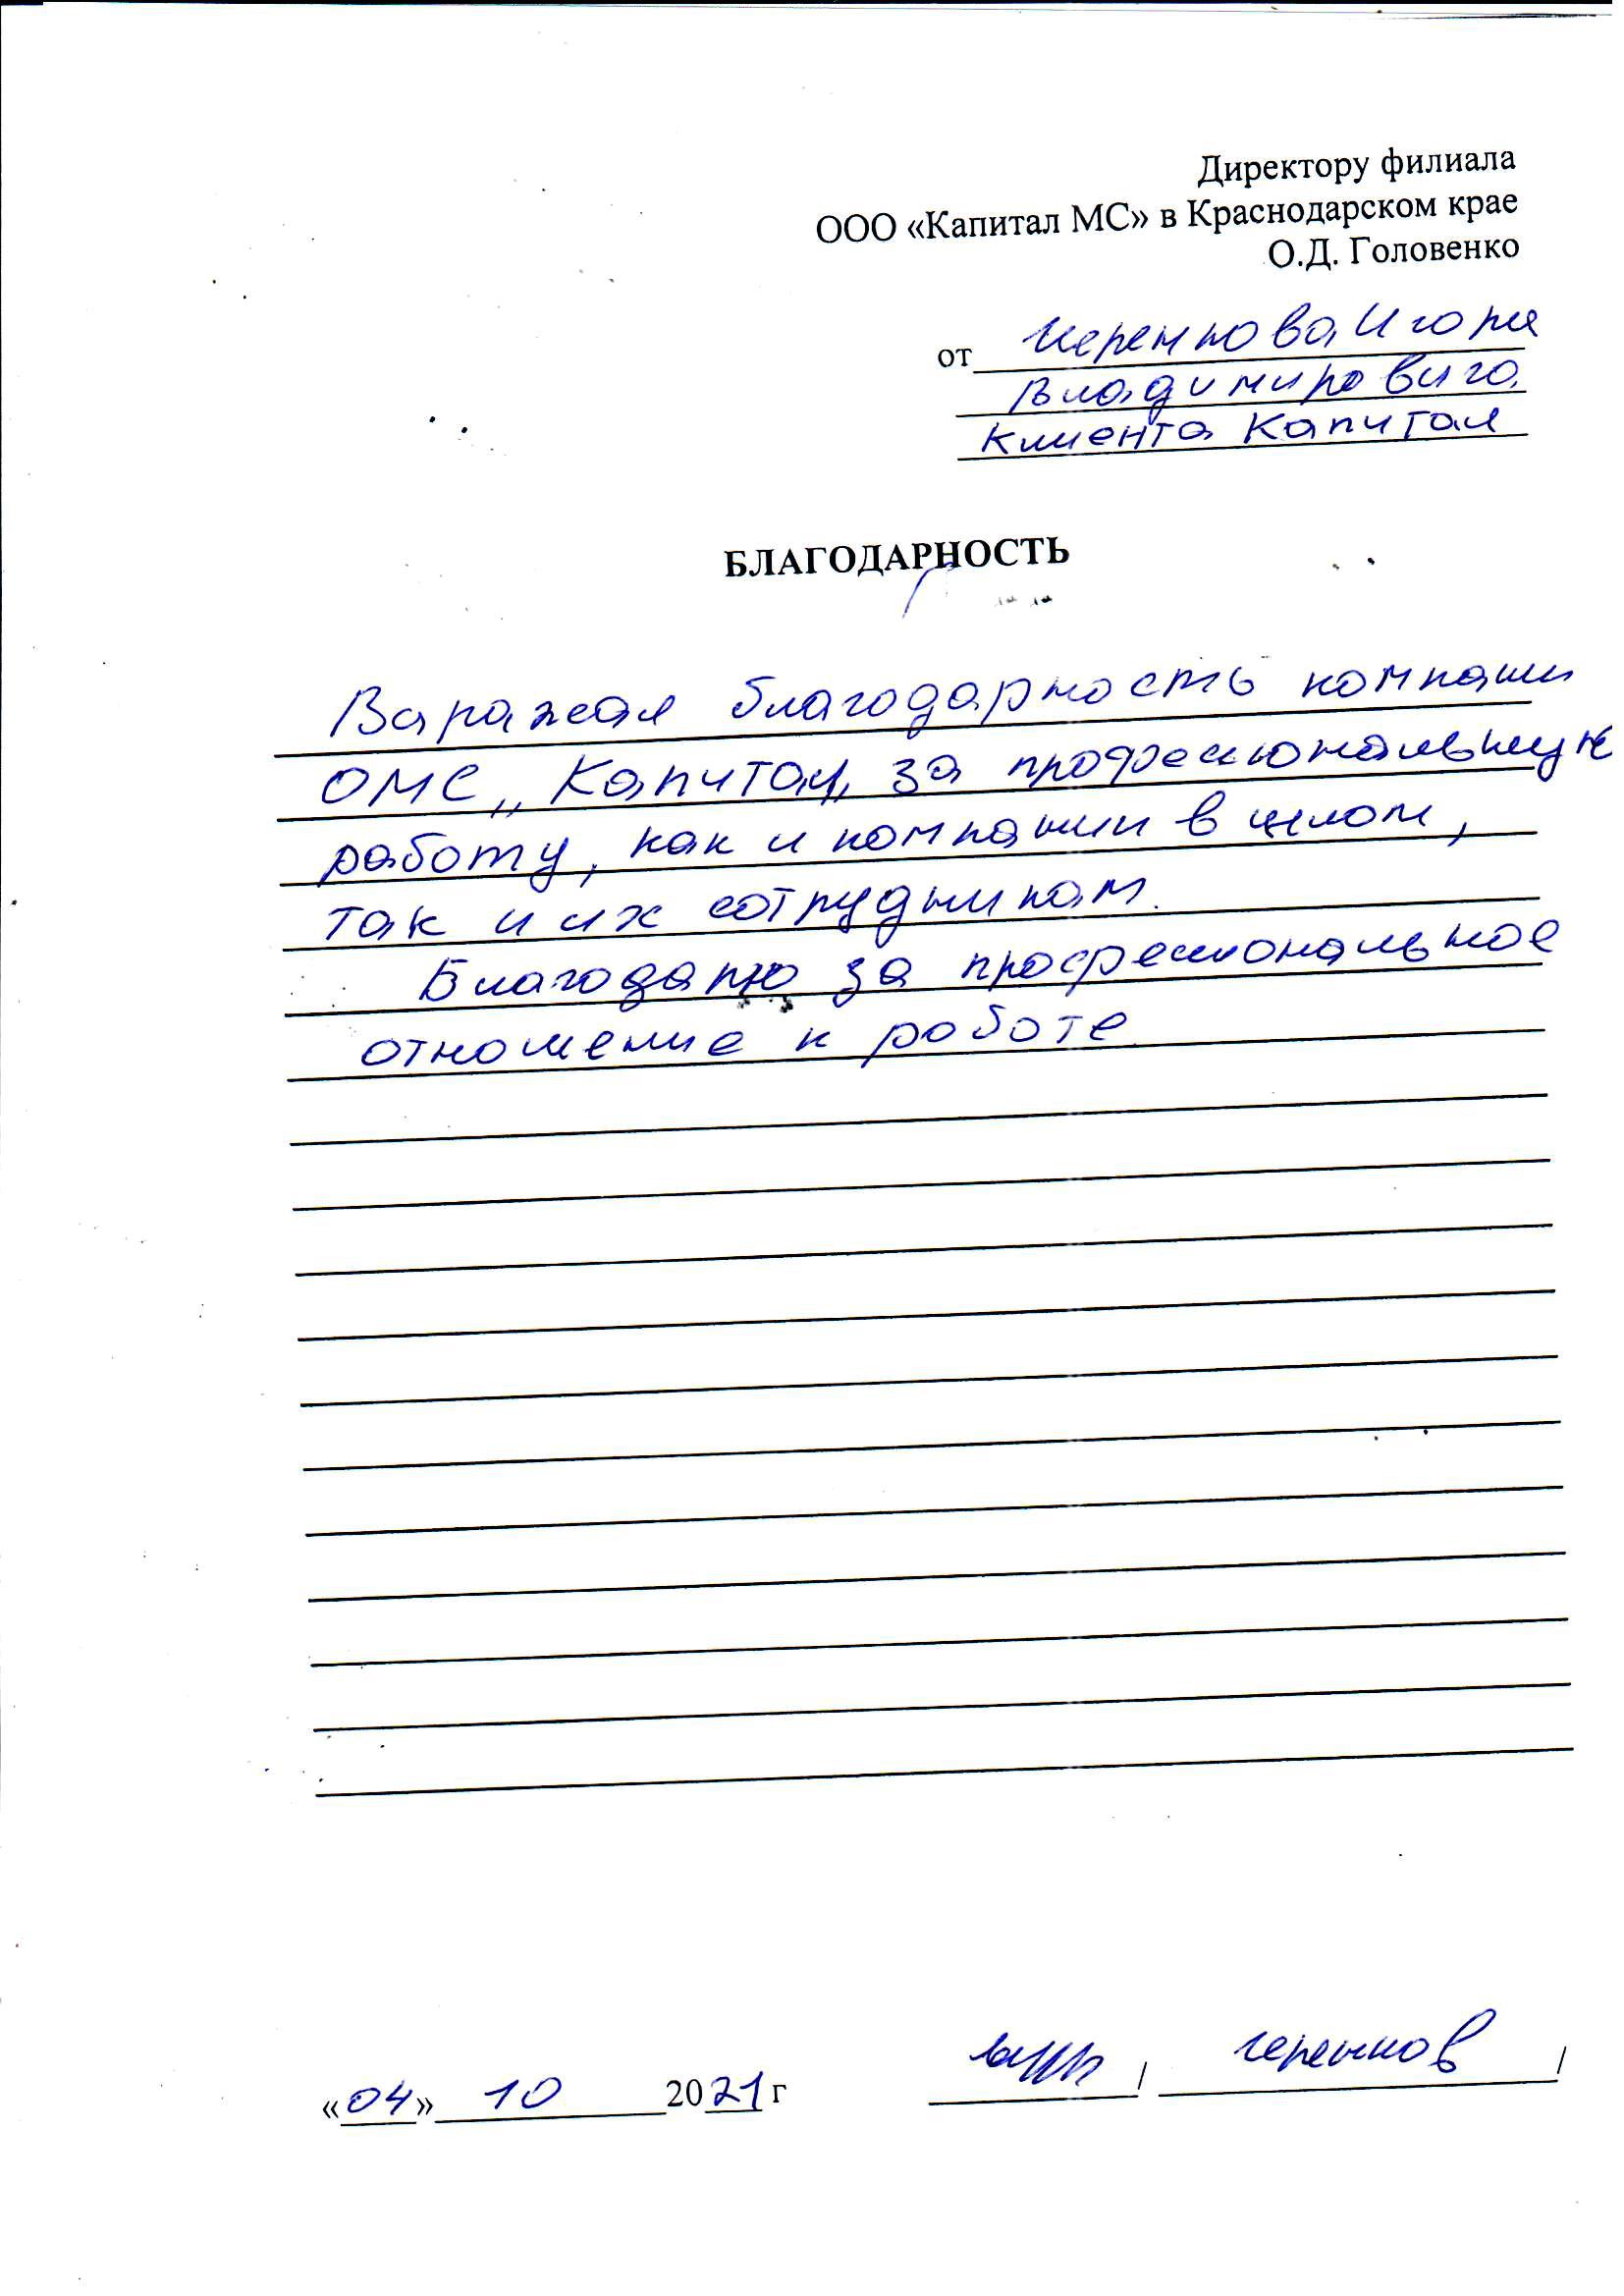 Директору филиала
ООО «Капитал МС» в Краснодарском крае
О.Д. Головенко
от Игоря
Владимировича
Клиента Капитал
БЛАГОДАРНОСТЬ
Варажая благодарность компании
ОМС „Капитал„ за профессиональную
работу, как и компании в целом,
так и их сотрудникам.
Благодарю за профессиональное
отношение к работе.
«04» 10 2021 г / /